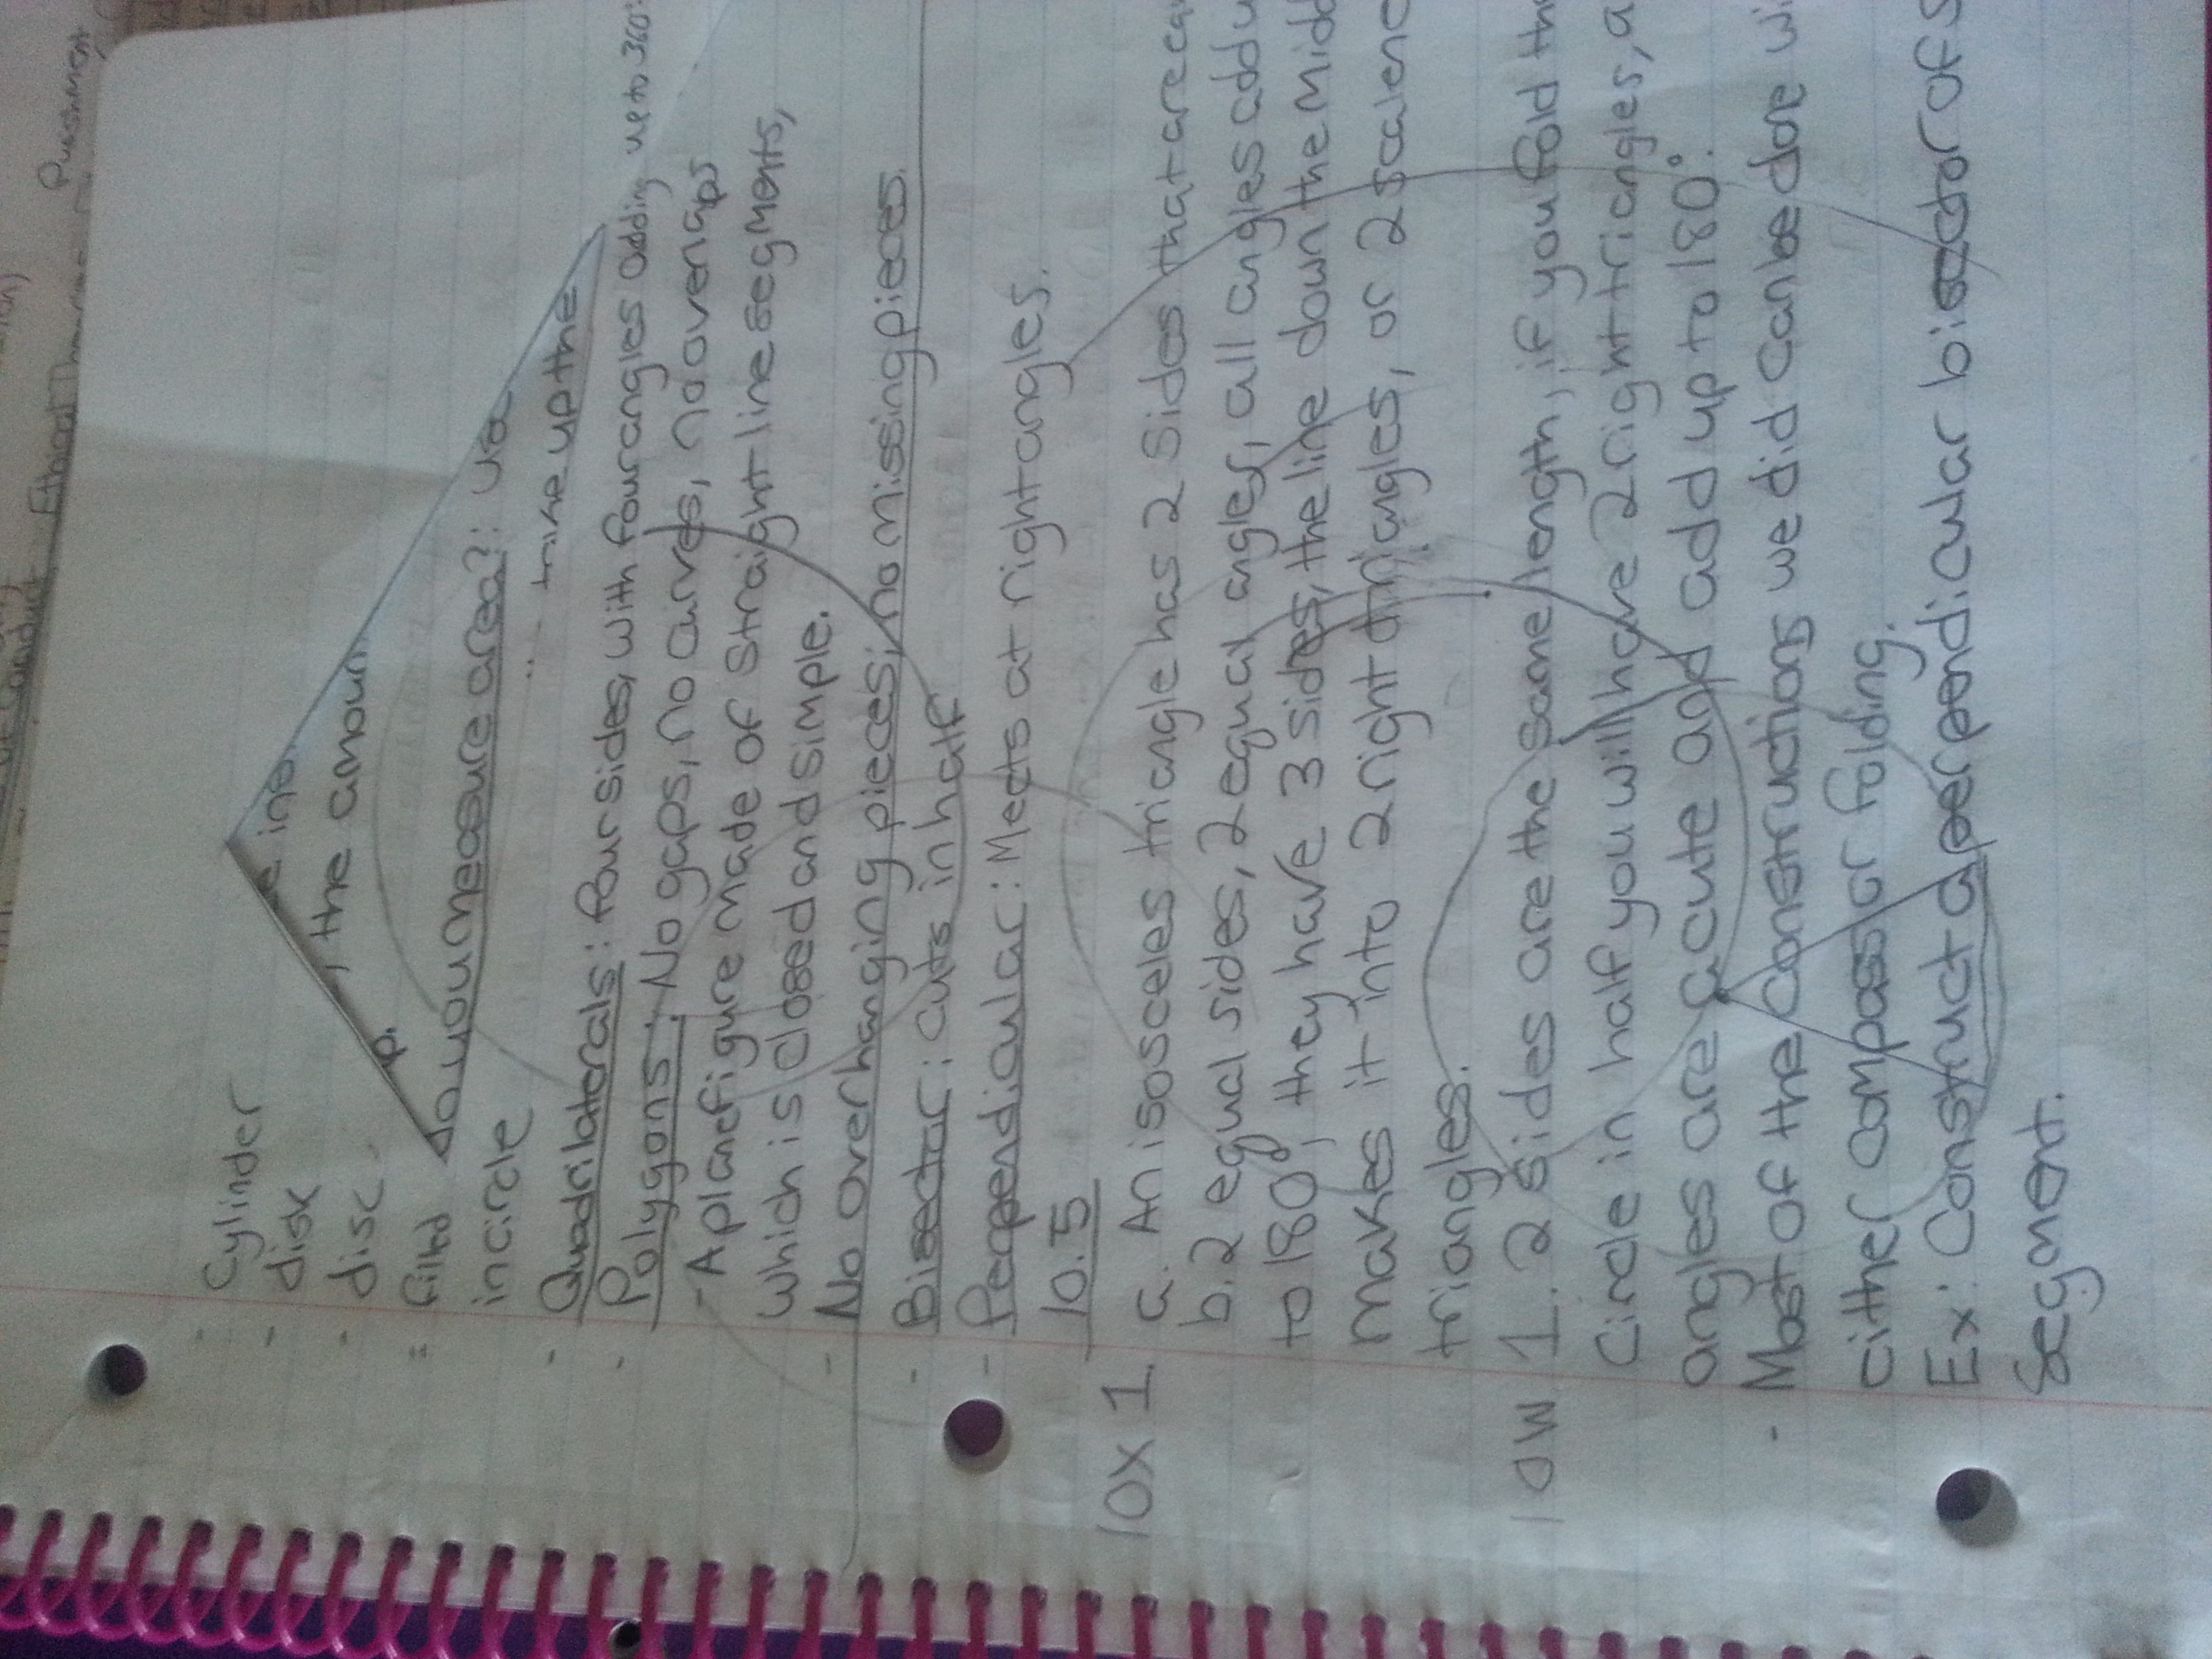 - Cylinder
- disk
- disc
, the amoun
= filled
p.
in circle
do you measure area?:
take up the
- Quadrilaterals: four sides, with four angles adding up to 360°
- Polygons: No gaps, no curves, no overlaps
- A plane figure made of straight line segments,
which is closed and simple.
- No overhanging pieces, no missing pieces.
- Bisector: cuts in half
- Perpendicular: Meets at right angles.
10.5
10X 1. a. An isosceles triangle has 2 sides that are equ
b. 2 equal sides, 2 equal angles, all angles add u
to 180°, they have 3 sides, the line down the midd
makes it into 2 right triangles, or 2 scalene
triangles.
10W 1. 2 sides are the same length, if you fold the
circle in half you will have 2 right triangles, a
angles are acute and add up to 180°.
- Most of the constructions we did can be done wi
either compass or folding.
Ex: Construct a perpendicular bisector of s
segment.